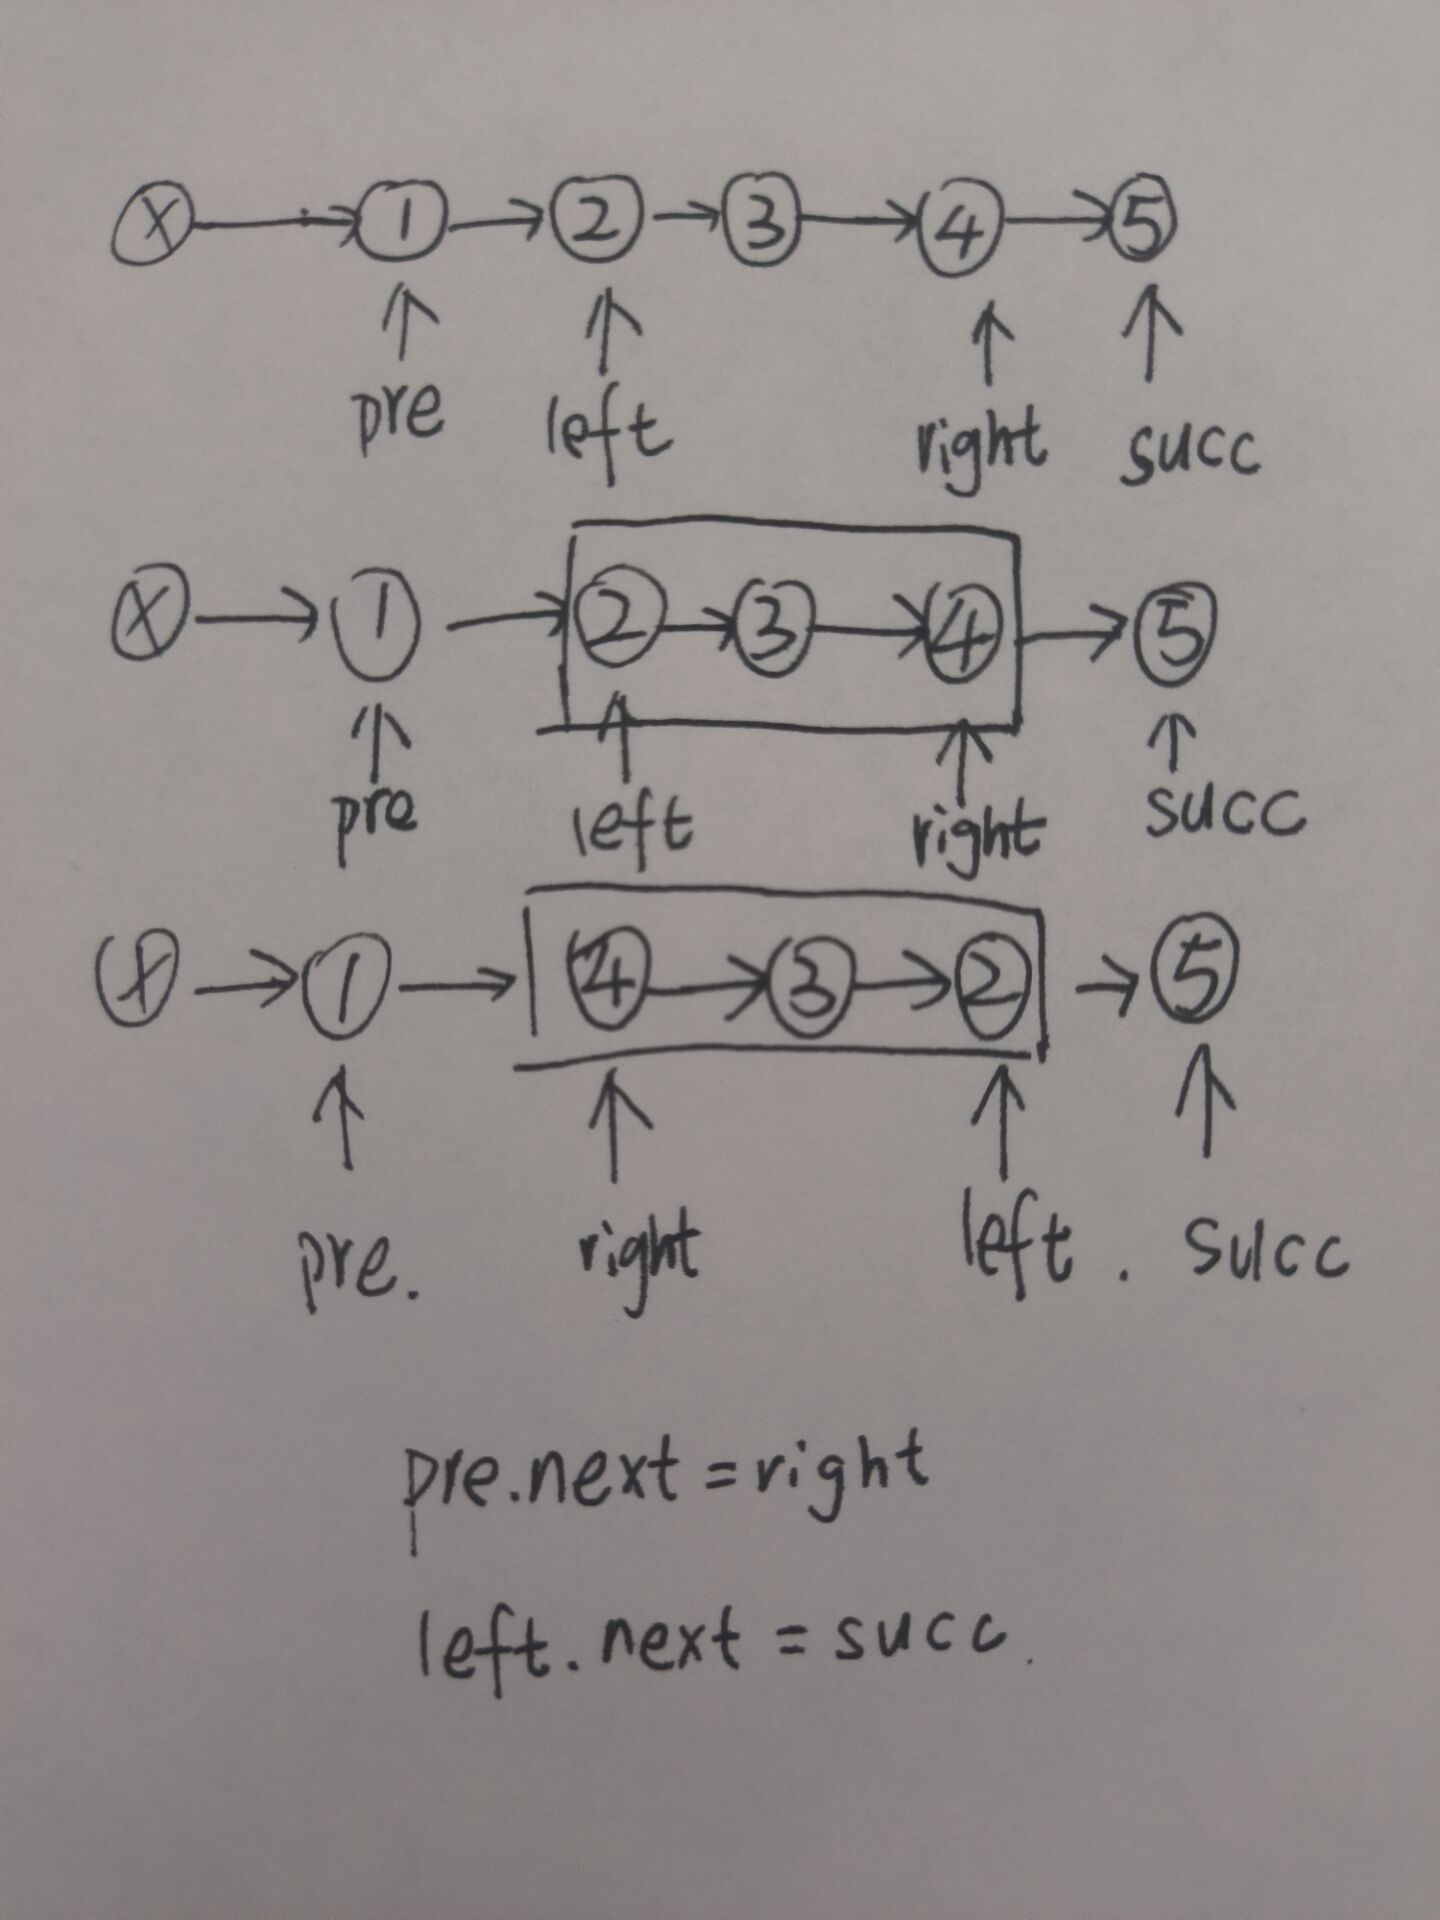 X 1 2 3 4 5
pre left right succ
X 1 2 3 4 5
pre left right succ
X 1 4 3 2 5
pre. right left. succ
pre.next = right
left.next = succ.